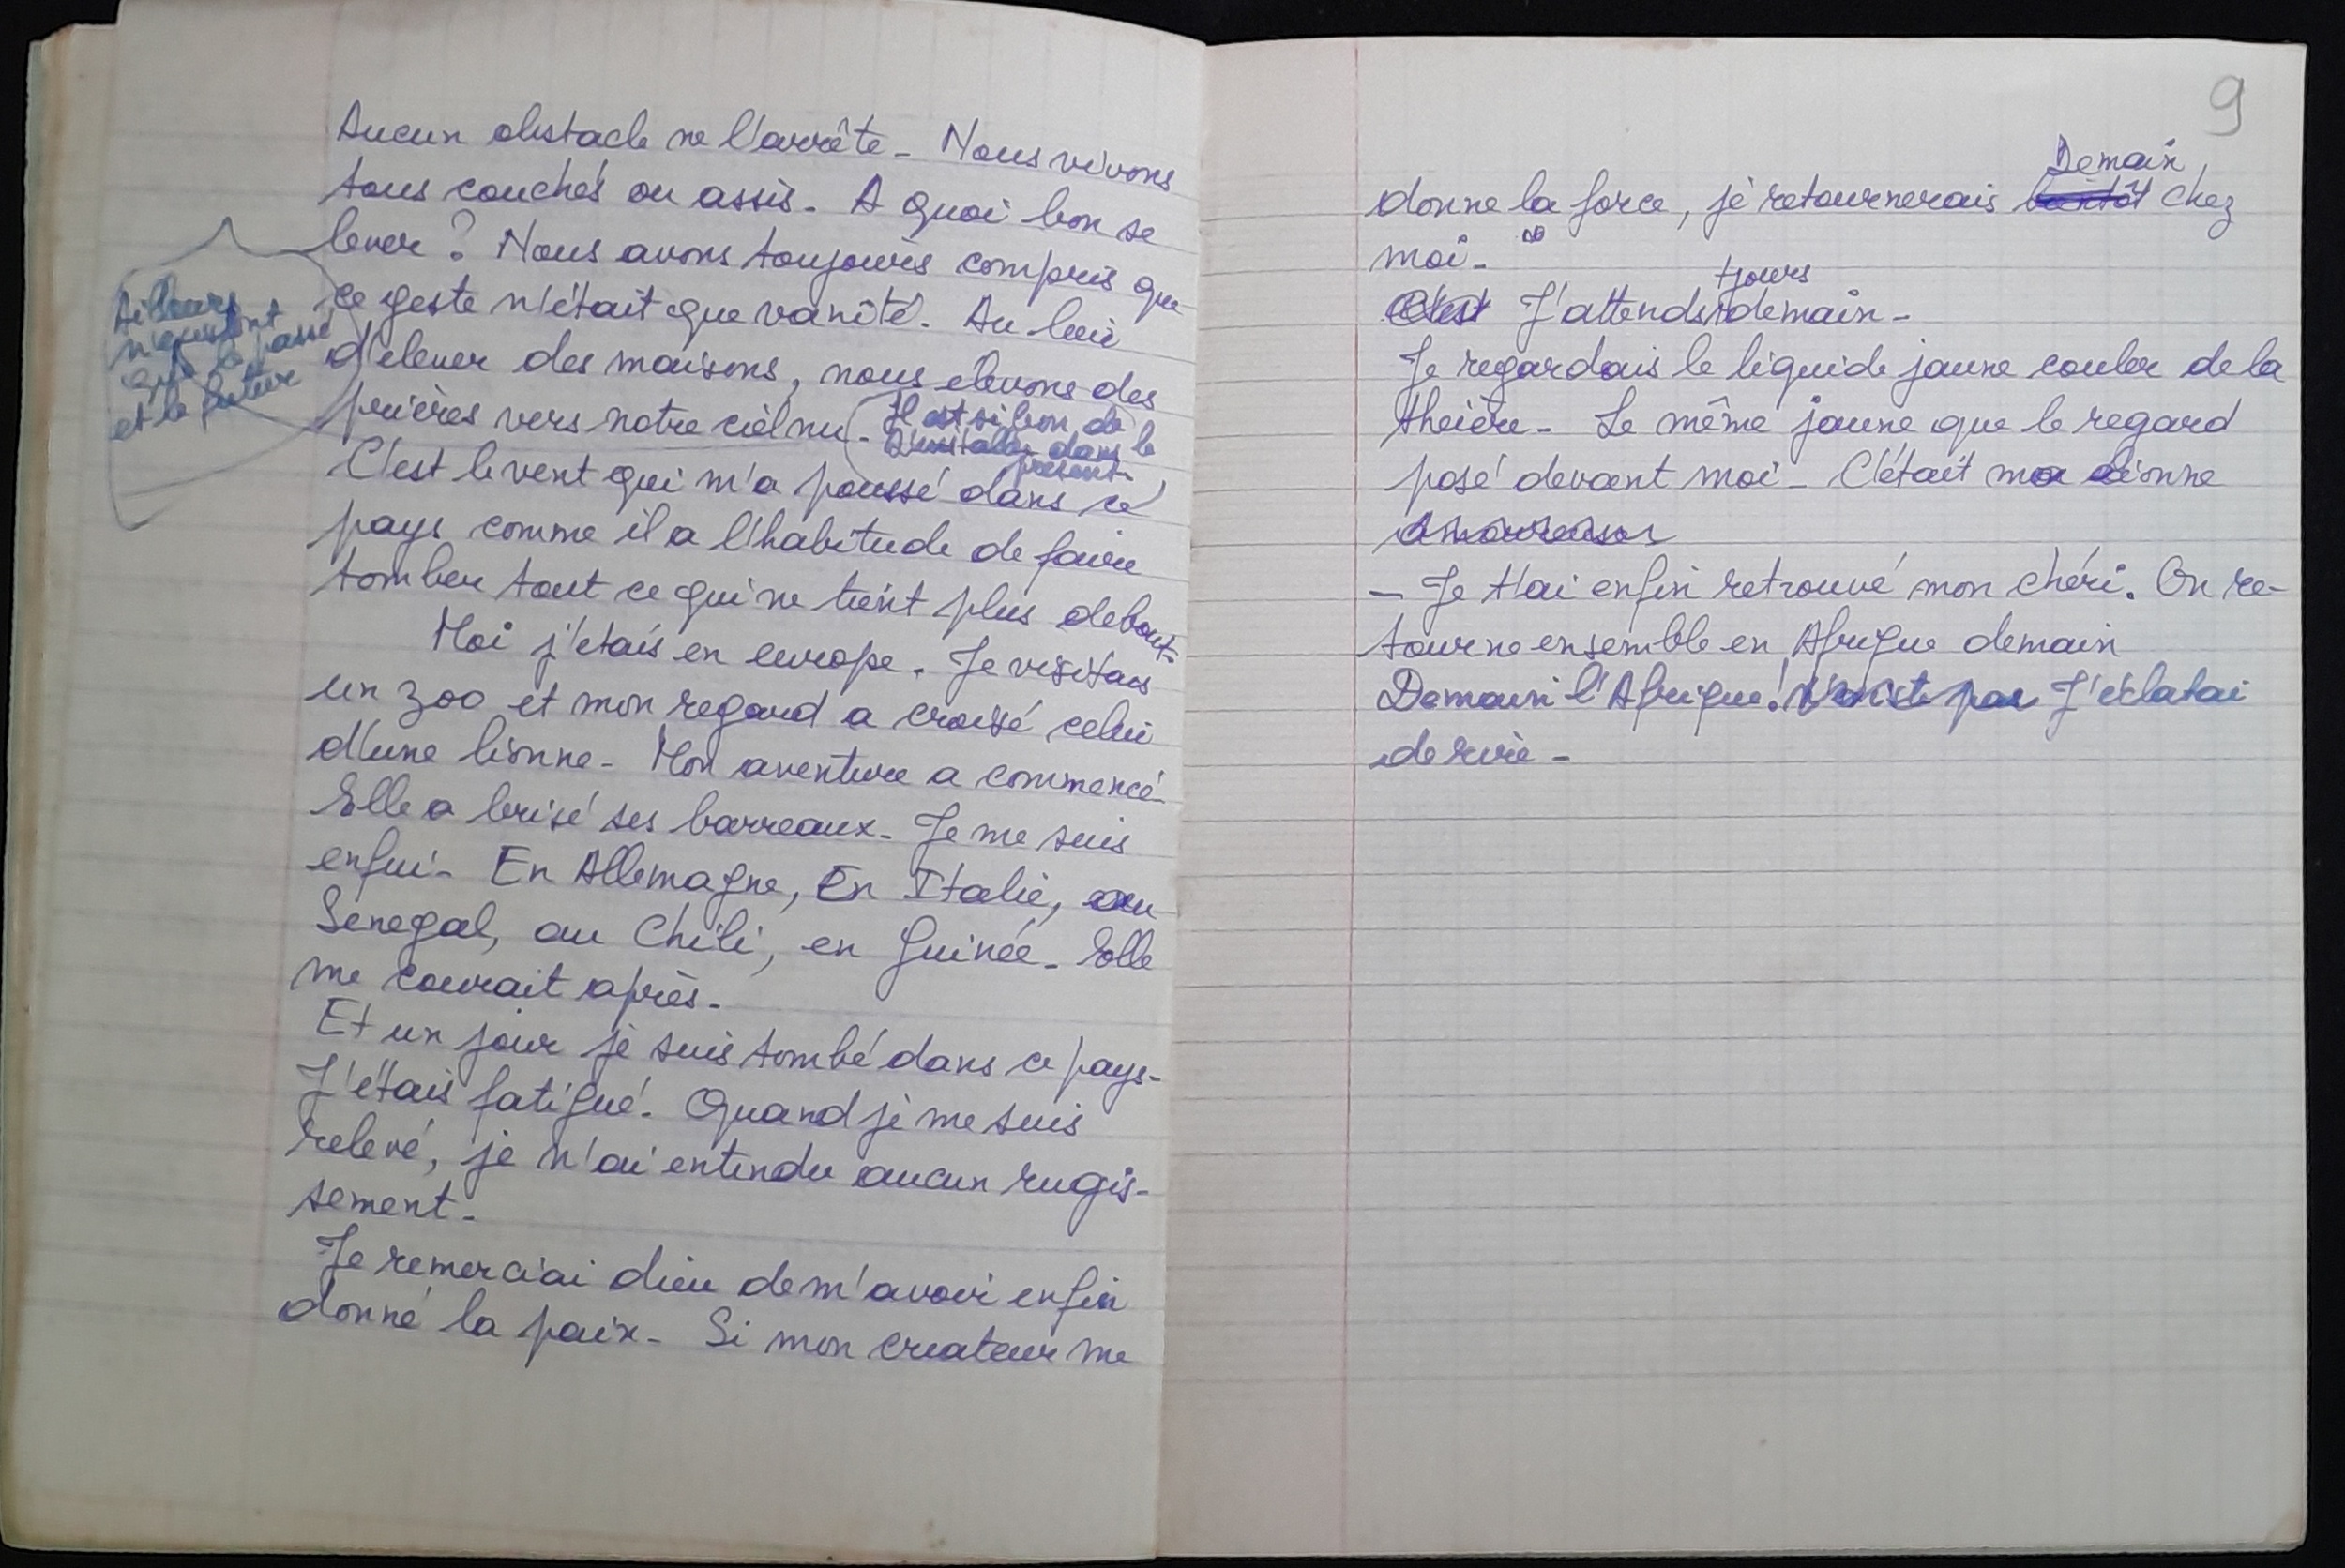 Aucun obstacle ne l'arrête_ Nous vivons
tous couchés ou assis_ A quoi bon se
lever? Nous avons toujours compris que
ce geste n'était que vanité. Au lieu
d'elever des maisons, nous elevons des
prières vers notre ciel nu_
Il est si bon de
s'installer dans le
présent_
Ailleurs
n'existent
que le passé
et le futur
C'est le vent qui m'a poussé dans ce
pays comme il a l'habitude de faire
tomber tout ce qui ne tient plus debout_
Moi j'étais en europe. Je visitais
un zoo et mon regard a croisé celui
d'une lionne_ Mon aventure a commencé_
Elle a brisé ses barreaux_ Je me suis
enfui_ En Allemagne, En Italie, au
Sénegal, au Chili, en Guinée_ Elle
me courait après_
Et un jour je suis tombé dans ce pays_
J'étais fatigué. Quand je me suis
relevé, je n'ai entendu aucun rugis-
sement_
Je remerciai dieu de m'avoir enfin
donné la paix_ Si mon createur me
9
Demain
donne la force, je retournerais bientôt chez
moi_
tjours
C'est J'attends demain_
Je regardais le liquide jaune couler de la
theière_ Le même jaune que le regard
posé devant moi_ C'était ma lionne
amoureuse
— Je t'ai enfin retrouvé mon chéri. On re-
tourne ensemble en Afrique demain
Demain l'Afrique! N'existe pas J'éclatai
de rire_